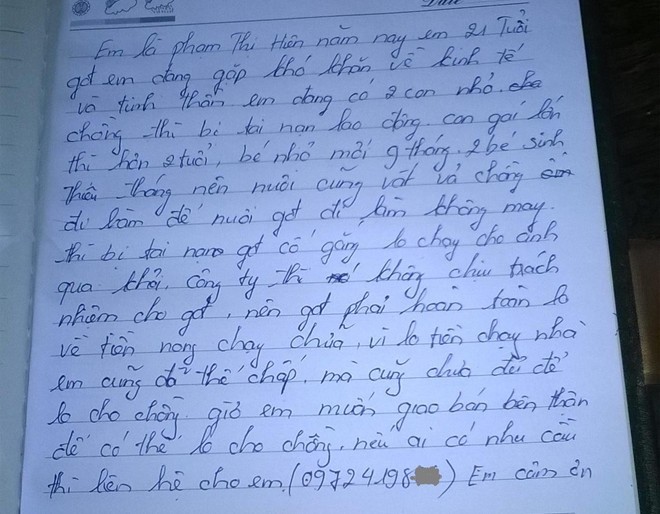 Em là phạm Thị Hiên năm nay em 21 Tuổi
gđ em đang gặp khó khăn, về kinh tế
và tinh thần em đang có 2 con nhỏ.
chồng thì bị tai nạn lao động. con gái lớn
thì hơn 2 tuổi, bé nhỏ mới 9 tháng. 2 bé sinh
Thiếu tháng nên nuôi cũng vất vả chồng em
đi làm để nuôi gđ đi làm không may.
thì bị tai nạn gđ cố gắng lo chạy cho anh
qua khỏi, công ty thì không chịu trách
nhiệm cho gđ, nên gđ phải hoàn toàn lo
về tiền nong chạy chữa, vì lo tiền chạy nhà
em cũng đã thế chấp, mà cũng chưa đủ để
lo cho chồng. giờ em muốn giao bán bên thân
để có thể lo cho chồng, nếu ai có nhu cầu
thì liên hệ cho em, (09724198 ) Em cảm ơn